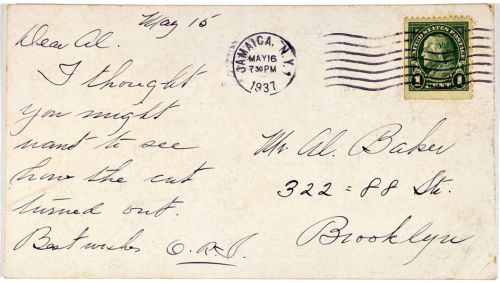 May 15
Dear Al.
I thought
you might
want to see
how the cut
turned out.
Best wishes
JAMAICA, N.Y.
MAY 16
7 30 PM
1937
UNITED STATES POSTAGE
1 1
Mr Al. Baker
322 = 88 St.
Brooklyn